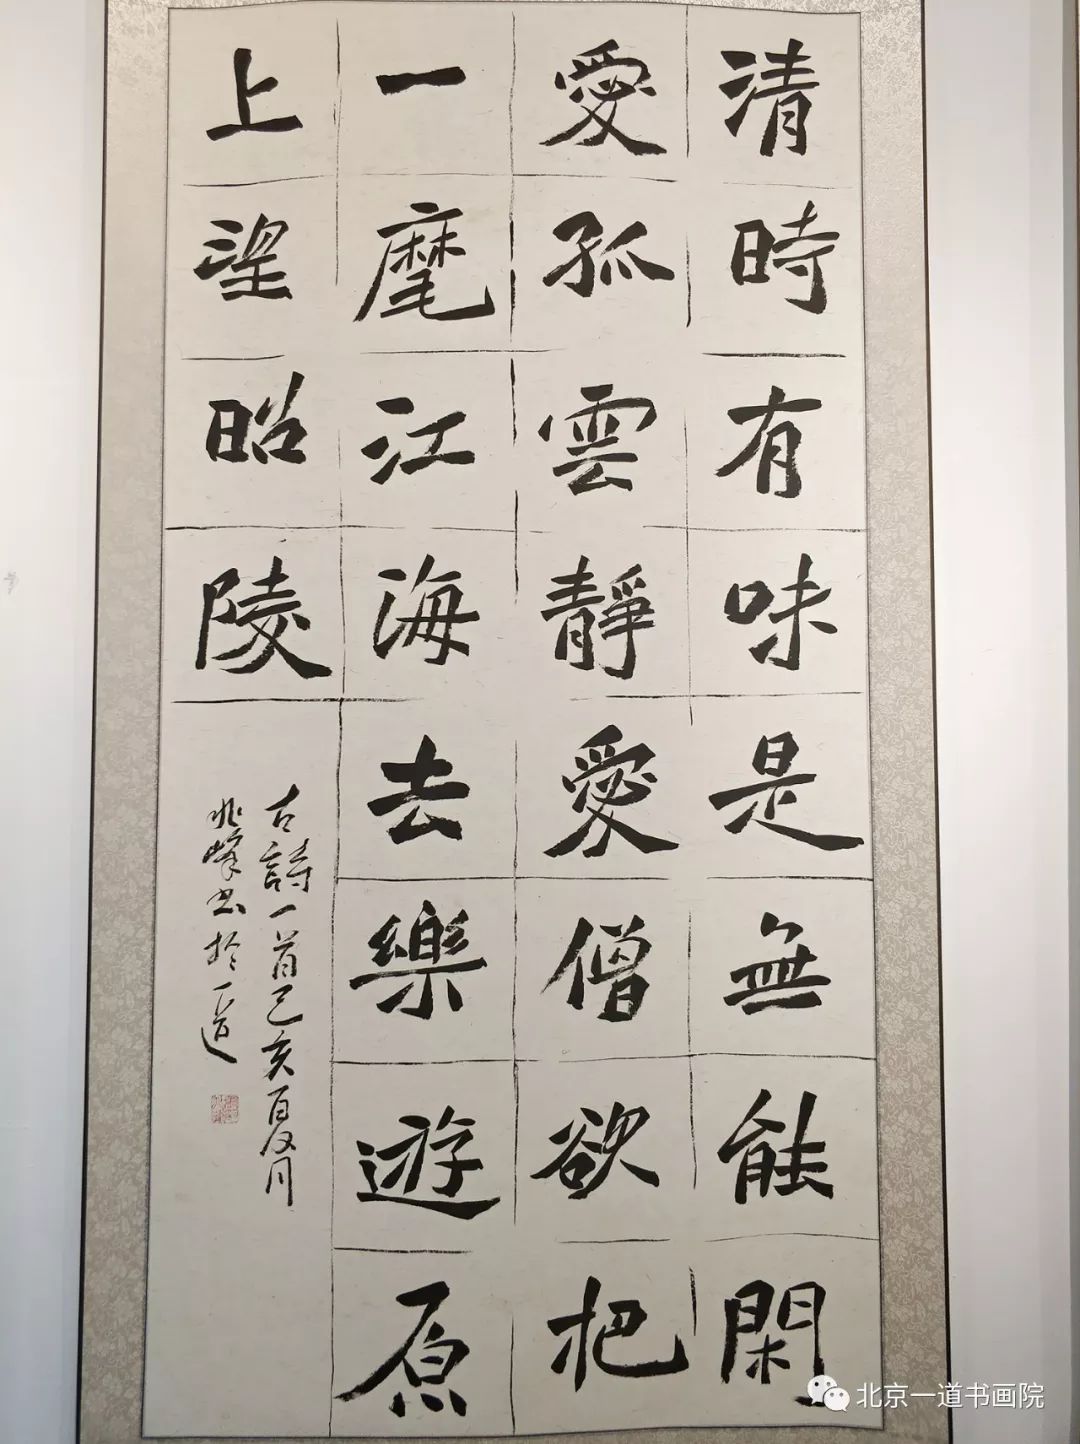 清時有味是無能閑
愛孤雲靜愛僧欲把
一麾江海去樂遊原
上望昭陵
古詩一首己亥夏月
兆峰书於一道
北京一道书画院